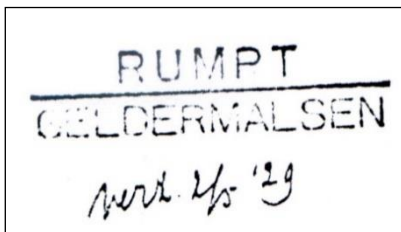 RUMPT
GELDERMALSEN
verz. 2/5 '29